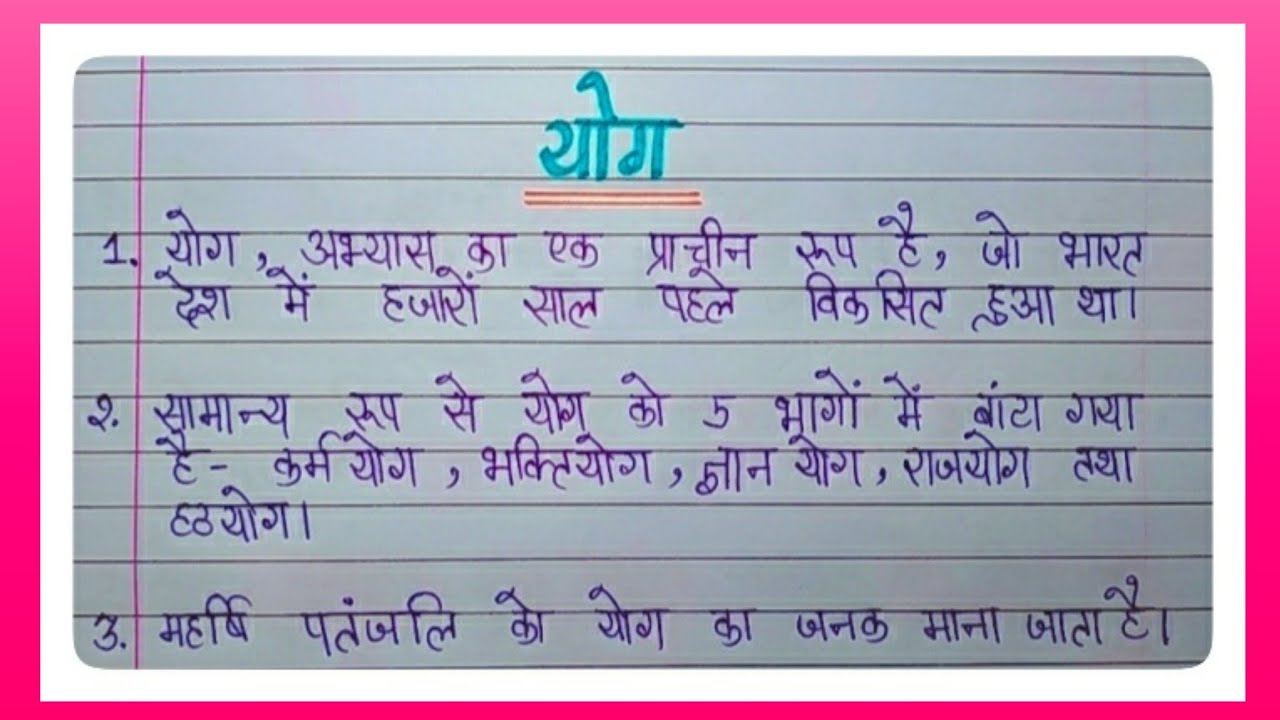 योग
1. योग, अभ्यास का एक प्राचीन रूप है, जो भारत
देश में हजारों साल पहले विकसित हुआ था।
२. सामान्य रूप से योग को 5 भागों में बांटा गया
है- कर्म योग, भक्तियोग, ज्ञान योग, राजयोग तथा
हठयोग।
3. महर्षि पतंजलि को योग का जनक माना जाता है।